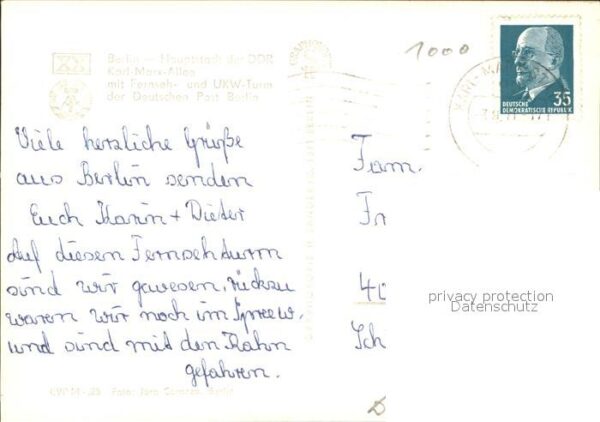 Berlin — Hauptstadt der DDR
Karl-Marx-Allee
mit Fernseh- und UKW-Turm
der Deutschen Post Berlin
1000
35
DEUTSCHE
DEMOKRATISCHE REPUBLIK
Viele herzliche Grüße
aus Berlin senden
Euch Karin + Dieter
Auf diesen Fernsehturm
sind wir gewesen, rückzu
waren wir noch im Spreew.
und sind mit den Kahn
gefahren.
Fam.
Fr
40
Sch
privacy protection
Datenschutz
Foto: Berlin